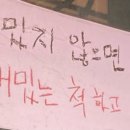 있지 않으면
재밌는 척 하고